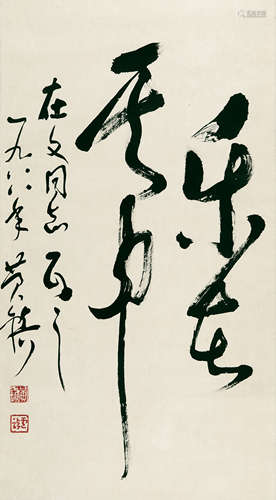 乐在
其中
在文同志 正之
一九八八年 黄镇